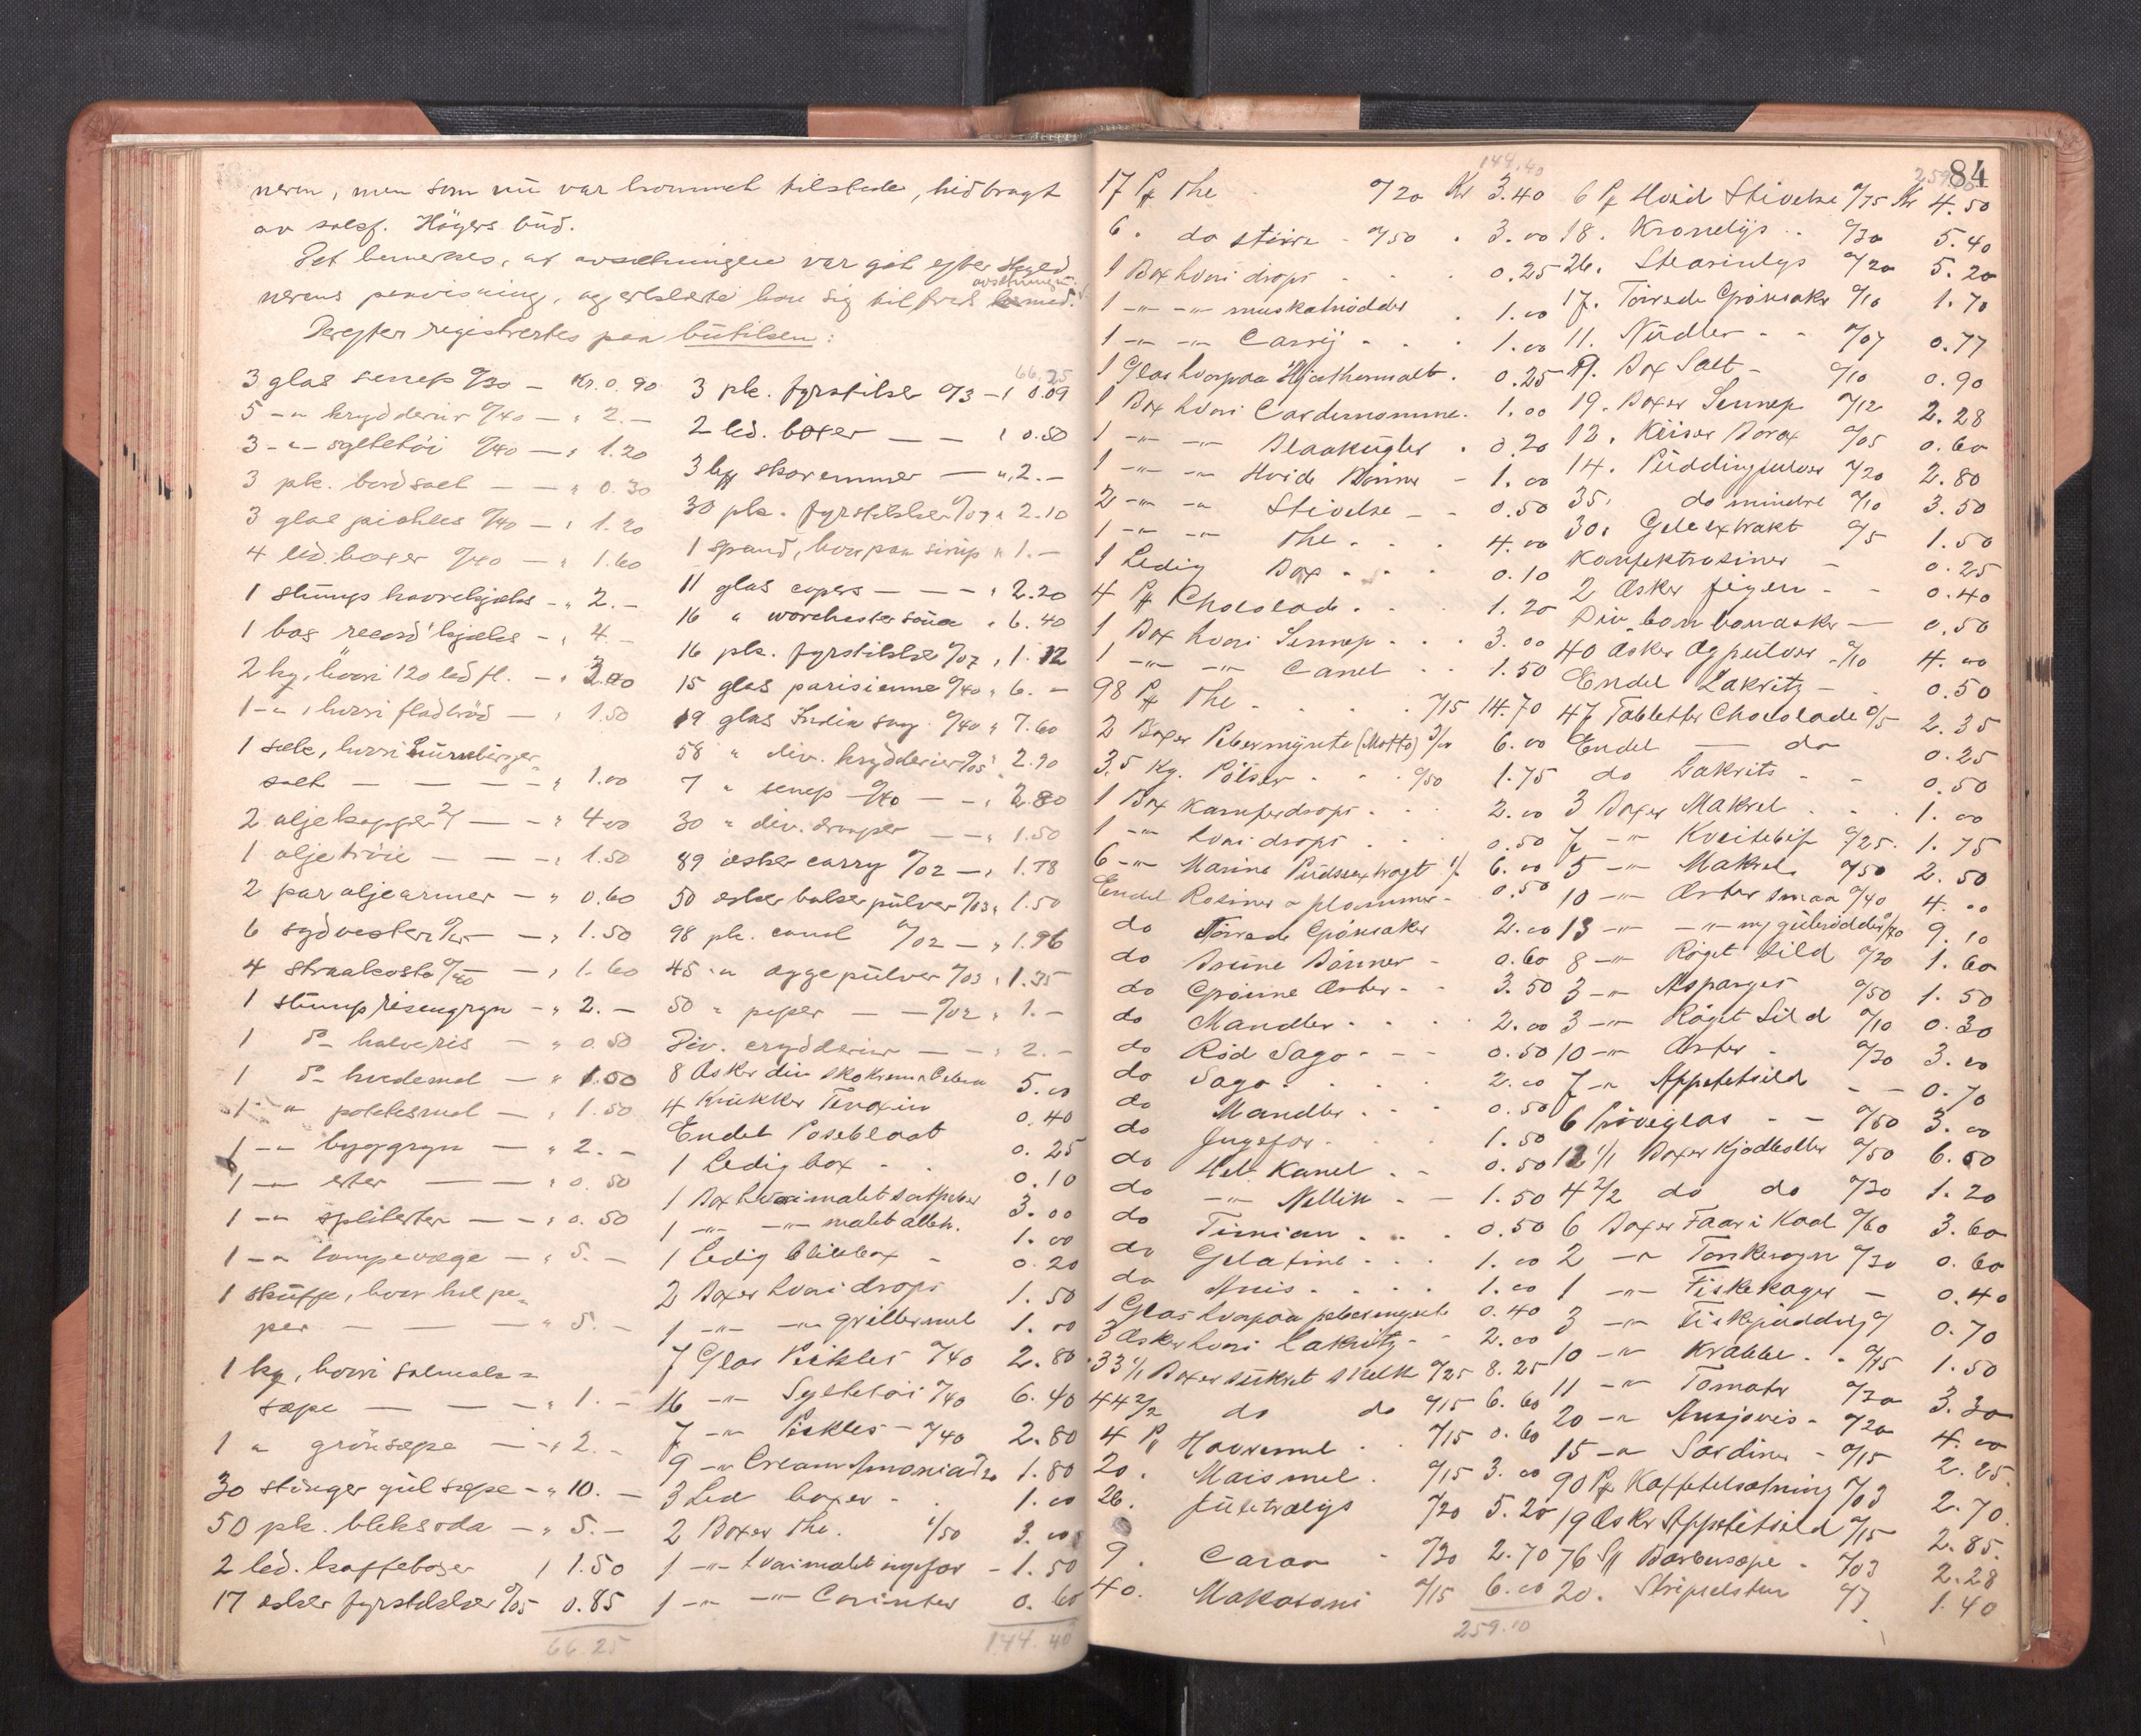 neren, men som nu var kommet tilstede, hidbragt
av sakf. Höyers bud.
Det bemerkes, at avsætningen var gåt efter
nerens paavisning, og erklærte han sig tilfreds
avsætningen.
Derefter registrertes paa butikken:
3 glas senep 0/30 — Kr. 0.90
5 -"- krydderier 0/40 — " 2.—
3 -"- syltetöi 0/40 — " 1.20
3 pk. bordsalt — — " 0.30
3 glas pickles 0/40 — " 1.20
4 led. boxer 0/40 — " 1.60
1 stump havrekjæks — " 2.—
1 box record kjæks — " 4.—
2 kg, hvori 120 led fl. — "
1 -"-, hvori fladbröd — " 1.50
1 sæk, hvori Lüneburger-
salt — — — — " 1.00
2 oljekapper 2/ — — " 4.00
1 oljetröie — — — " 1.50
2 par oljearmer — " 0.60
6 sydvester 0/25 — — " 1.50
4 straakoste 0/40 — " 1.60
1 stump risengryn — " 2.—
1 do halveris — " 0.50
1 do hvedemel — " 1.50
1 " potetesmel — " 1.50
1 -"- byggryn — " 2.—
1 -"- erter — — " 0.50
1 -"- spliterter — — " 0.50
1 -"- lampevæge — " 5.—
1 skuffe, hvori hel pe-
per — — — " 5.—
1 kg, hvori salmiak-
sæpe — — — " 1.—
1 " grönsæpe — " 2.—
30 stænger gul sæpe — " 10.—
50 pk. bleksoda — " 5.—
2 led. kaffeboxer " 1.50
17 æsker fyrstikker 0/05 0.85
66.25
66.25
3 pk. fyrstikker 0/3 — " 0.09
2 led. boxer — — " 0.50
3 kg skoremmer — " 2.—
30 pk. fyrstikker 0/07 " 2.10
1 spand, hvorpaa sirup " 1.—
11 glas capers — — " 2.20
16 " worchestersaus " 6.40
16 pk. fyrstikker 0/07 " 1.12
15 glas parisienne 0/40 " 6.—
19 glas India soy. 0/40 " 7.60
58 " div. krydderier 0/05 " 2.90
7 " senep 0/40 — — " 2.80
30 " div. draaper — — " 1.50
89 æsker carry 0/02 — " 1.78
50 æsker bakerpulver 0/03 " 1.50
98 pk. canel 0/02 — " 1.96
45 -"- eggepulver 0/03 " 1.35
50 " peper — — 0/02 " 1.—
Div. crydderier — — " 2.—
8 Æsker div skokrem 5.00
4 Krukker Tenaxin 0.40
Endel Poseblaat 0.25
1 Ledig box - . 0.10
1 Box hvori malet sortpeber 3.00
1 -"- -"- malet alleh. 1.00
1 Ledig blikbox - 0.20
2 Boxer hvori drops 1.50
1 -"- -"- grillermel 1.00
7 Glas Pickles 0/40 2.80
16 -"- Syltetöi 0/40 6.40
7 -"- Pickles - 0/40 2.80
9 -"- Cream Amonia 0/20 1.80
3 Led boxer - . 1.00
2 Boxer The. 1/50 3.00
1 -"- hvori malet ingefær - 1.50
1 -"- -"- Corinter 0.60
144.40
84
144.40
17 Pk The 0/20 Kr 3.40
6 . do större - 0/50 . 3.00
1 Box hvori drops . . . 0.25
1 -"- -"- muskatnödder . 1.00
1 -"- -"- Carrij . . . 1.00
1 Glas hvorpaa Hjorthornsalt . 0.25
1 Box hvori Cardemomme . 1.00
1 -"- -"- Blaakugler . 0.20
1 -"- -"- Hvide Bönner - 1.00
2 -"- -"- Stivelse - - 0.50
1 -"- -"- The . . . 4.00
1 Ledig Box . . . 0.10
4 Pk Chocolade . . 1.20
1 Box hvori Sennep . . . 3.00
1 -"- -"- Canel . . 1.50
98 Pk The . . . . 0/15 14.70
2 Boxer Pebermynte (Motto) 3/00 6.00
3,5 Kg. Pölser . . . 0/50 1.75
1 Box Kamferdrops . . . 2.00
1 -"- hvori drops . . . 0.50
6 -"- Marine Pudseextragt 1/ 6.00
Endel Rosiner & plommer - 0.50
do Törrede Grönsaker 2.00
do Brune Bönner - 0.60
do Grönne Ærter - - 3.50
do Mandler . . . . 2.00
do Röd Sago - - - 0.50
do Sago . . . . . 2.00
do Mandler . . . 0.50
do Ingefær . . . 1.50
do Hel Kanel . - 0.50
do -"- Nellik . - 1.50
do Timian . . . 0.50
do Gelatine . . . 1.00
do Anis . . . . 1.00
1 Glas hvorpaa pebermynte 0.40
3 Æsker hvori Lakritz - - 2.00
33 1/1 Boxer sukret Melk 0/25 8.25
44 2/2 do do 0/15 6.60
4 Pk Havremel . . 0/15 0.60
20 . Maismel . 0/15 3.00
26. Juletrælys 0/20 5.20
9 . Cacao - 0/30 2.70
40. Makaroni 0/15 6.00
259.10
6 Pk Hvid Stivelse 0/75 Kr 4.50
18. Kronelys . . 0/30 5.40
26. Stearinlys 0/20 5.20
17. Törrede Grönsaker 0/10 1.70
11. Nudler - - 0/07 0.77
9. Box Salt - 0/10 0.90
19. Boxer Sennep 0/12 2.28
12. Keiser Borax 0/05 0.60
14. Puddingpulver 0/20 2.80
35. do mindre 0/10 3.50
30. Geleextrakt 0/5 1.50
Konfektrosiner - 0.25
2 Æsker figen - - 0.40
Div. bonbonæsker — 0.50
40 Æsker Ægpulver - 0/10 4.00
Endel Lakritz - . 0.50
47 Tabletter Chocolade 0/5 2.35
Endel — do 0.25
do Lakrits - - 0.50
3 Boxer Makrel . . . 1.00
7 -"- Kveitebif 0/25 . 1.75
5 -"- Makrel 0/50 2.50
10 -"- Ærter smaa 0/40 4.00
13 -"- -"- m/ gulrödder 0/70 9.10
8 -"- Röget Sild 0/20 1.60
3 -"- Asparges 0/50 1.50
3 -"- Röget Sild 0/10 0.30
10 -"- Ærter - 0/30 3.00
7 -"- Appetitsild - - 0.70
6 Pröveglas - - 0/50 3.00
12 1/1 Boxer Kjödboller 0/50 6.00
4 2/2 do do 0/30 1.20
6 Boxer Faar i Kaal 0/60 3.60
2 -"- Torskerogn 0/30 0.60
1 -"- Fiskekager - 0.40
3 -"- Fiskepudding 0/ 0.70
10 -"- Krabbe . . 0/15 1.50
11 -"- Tomater 0/30 3.30
20 -"- Ansjovis - 0/20 4.00
15 -"- Sardiner - 0/15 2.25
90 Pk Kaffetilsætning 0/03 2.70
19 Æsker Appetitsild 0/15 2.85
76 St Barbersæpe - 0/03 2.28
20. Stripselsten 0/7 1.40